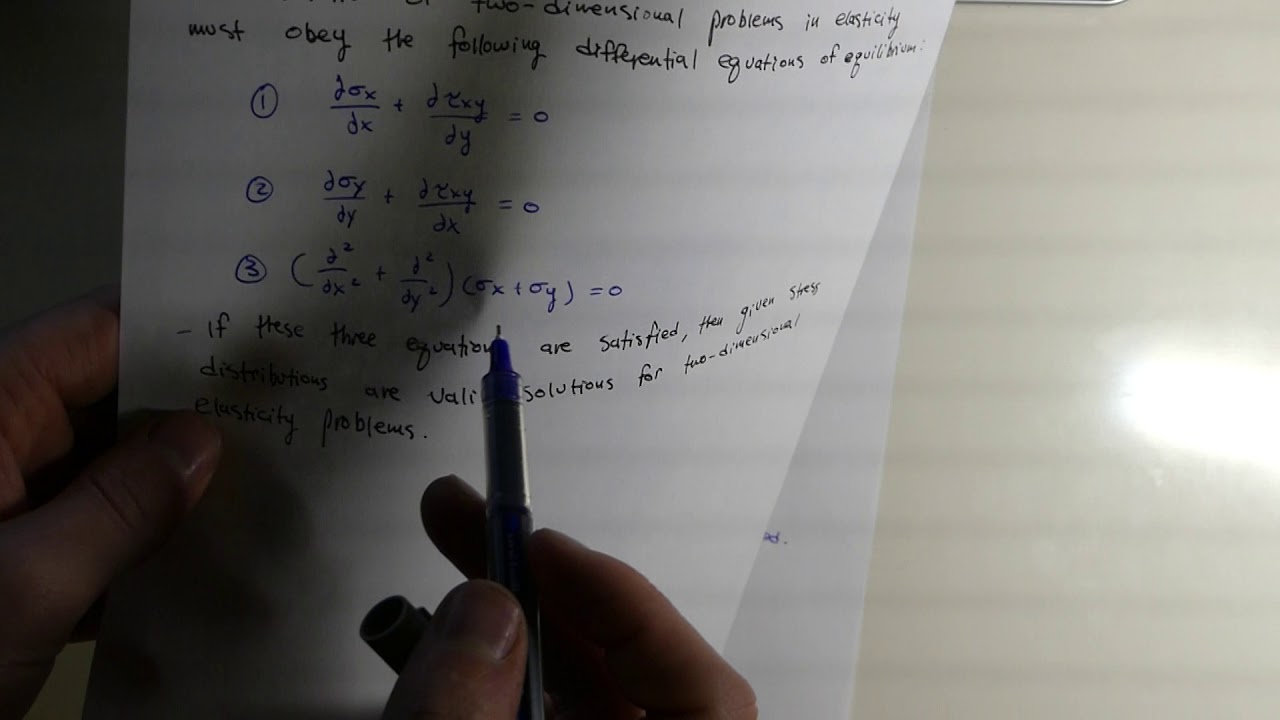 two-dimensional problems in elasticity
must obey the following differential equations of equilibrium:
① ∂σx/∂x + ∂τxy/∂y = 0
② ∂σy/∂y + ∂τxy/∂x = 0
③ (∂²/∂x² + ∂²/∂y²)(σx + σy) = 0
- If these three equation are satisfied, then given stress
distributions are vali solutions for two-dimensional
elasticity problems.